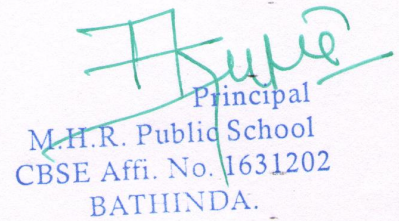 Principal
M.H.R. Public School
CBSE Affi. No. 1631202
BATHINDA.